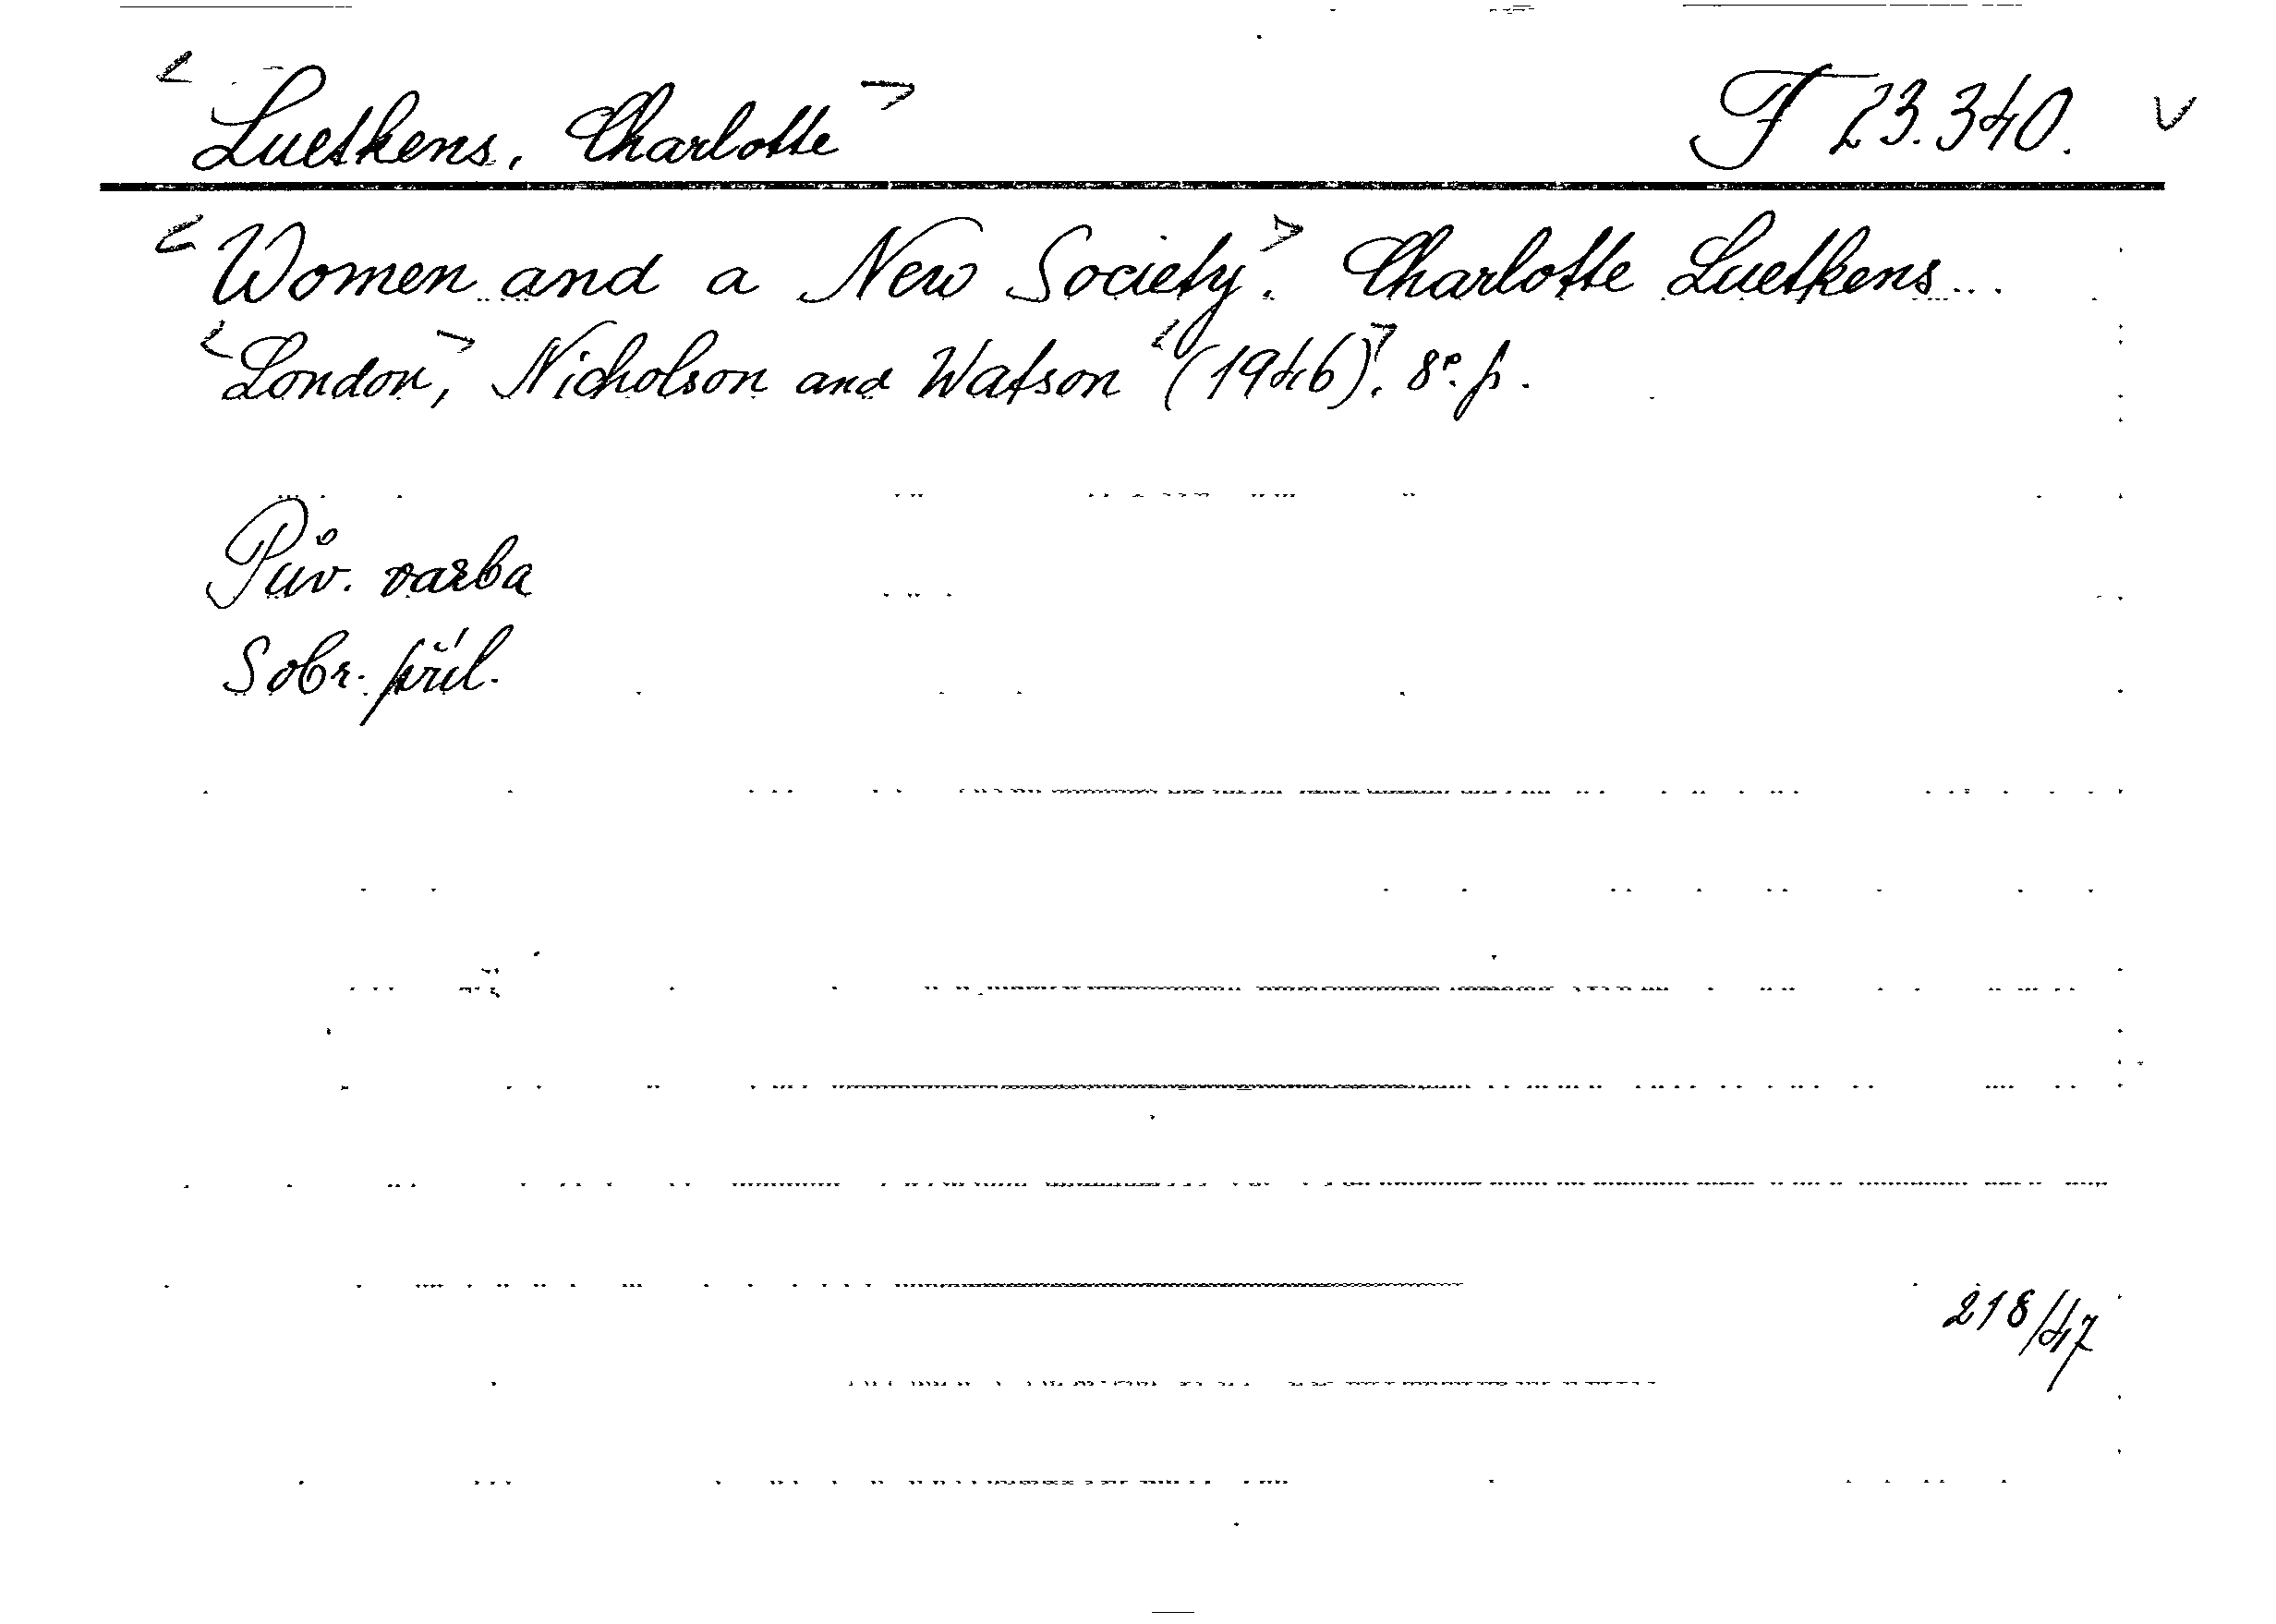 <Luetkens, Charlotte> F 23.340. v
<Women and a New Society.> Charlotte Luetkens...
<London,> Nicholson and Watson <(1946).> 8°. p.
Pův. vazba
S obr. příl.
218/47